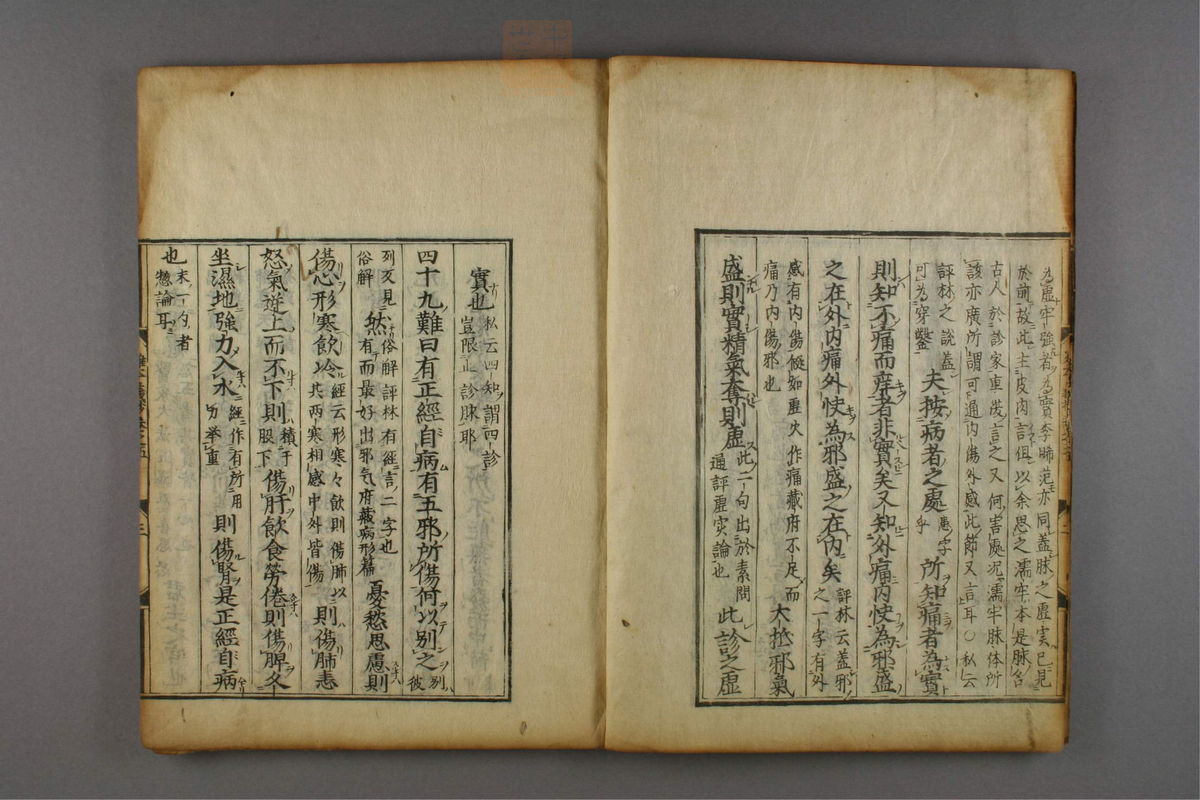 為虛牢強者為實李晞范亦同蓋脉之虛実已見
於前故此主皮肉言但以余思之濡牢本是脉名
古人於診家重發言之又何害處况濡牢脉体所
該亦廣所謂可通内傷外感此節又言耳○私云
評林之説蓋可為穿鑿夫按病者之處愚字乎所知痛者為實
則知不痛而痒者非實矣又知外痛内快為邪盛
之在外内痛外快為邪盛之在内矣評林云蓋邪之一字有外
感有内傷假如虛火作痛藏府不足而痛乃内傷邪也大抵邪氣
盛則實精氣奪則虛此二句出於素問通評虛実論也此診之虛
實也私云四知謂四診豈限止診脉耶
四十九難曰有正經自病有五邪所傷何以別之別彼
列又見俗解然俗解評林有經言二字也有而最好出邪气府藏病形篇憂愁思慮則
傷心形寒飲冷經云形寒々飲則傷肺以其両寒相感中外皆傷則傷肺恚
怒氣逆上而不下則積于脇下傷肝飲食勞倦則傷脾久
坐濕地強力入水經作有所用力舉重則傷腎是正經自病
也末一句者惣論耳